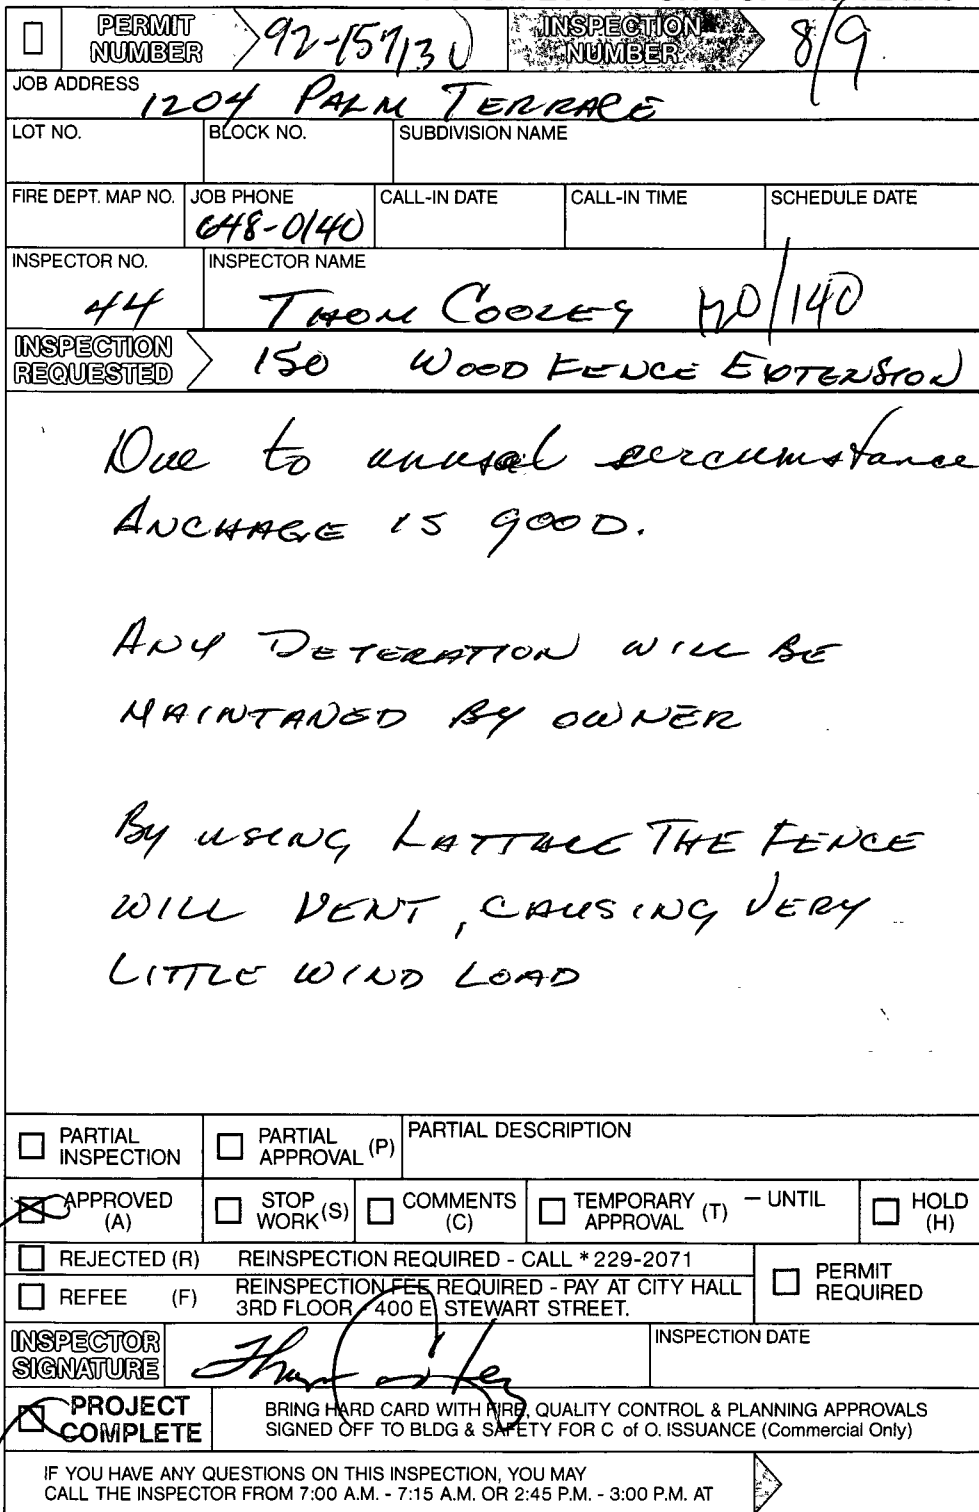 PERMIT NUMBER 92-157130 INSPECTION NUMBER 8/9
JOB ADDRESS 1204 PALM TERRACE
LOT NO. BLOCK NO. SUBDIVISION NAME
FIRE DEPT. MAP NO. JOB PHONE CALL-IN DATE CALL-IN TIME SCHEDULE DATE
648-0140
INSPECTOR NO. INSPECTOR NAME
44 THOM COOLEY /140
INSPECTION REQUESTED 150 WOOD FENCE EXTENSION
Due to unusal circumstance
ANCHAGE IS GOOD.
ANY DETERATION WILL BE
MAINTANED BY OWNER
By USING LATTACE THE FENCE
WILL VENT, CAUSING VERY
LITTLE WIND LOAD
PARTIAL INSPECTION PARTIAL APPROVAL (P) PARTIAL DESCRIPTION
APPROVED (A) STOP WORK (S) COMMENTS (C) TEMPORARY APPROVAL (T) — UNTIL HOLD (H)
REJECTED (R) REINSPECTION REQUIRED - CALL *229-2071
REFEE (F) REINSPECTION FEE REQUIRED - PAY AT CITY HALL
3RD FLOOR - 400 E. STEWART STREET.
PERMIT REQUIRED
INSPECTOR SIGNATURE INSPECTION DATE
PROJECT COMPLETE BRING HARD CARD WITH FIRE, QUALITY CONTROL & PLANNING APPROVALS
SIGNED OFF TO BLDG & SAFETY FOR C of O. ISSUANCE (Commercial Only)
IF YOU HAVE ANY QUESTIONS ON THIS INSPECTION, YOU MAY
CALL THE INSPECTOR FROM 7:00 A.M. - 7:15 A.M. OR 2:45 P.M. - 3:00 P.M. AT